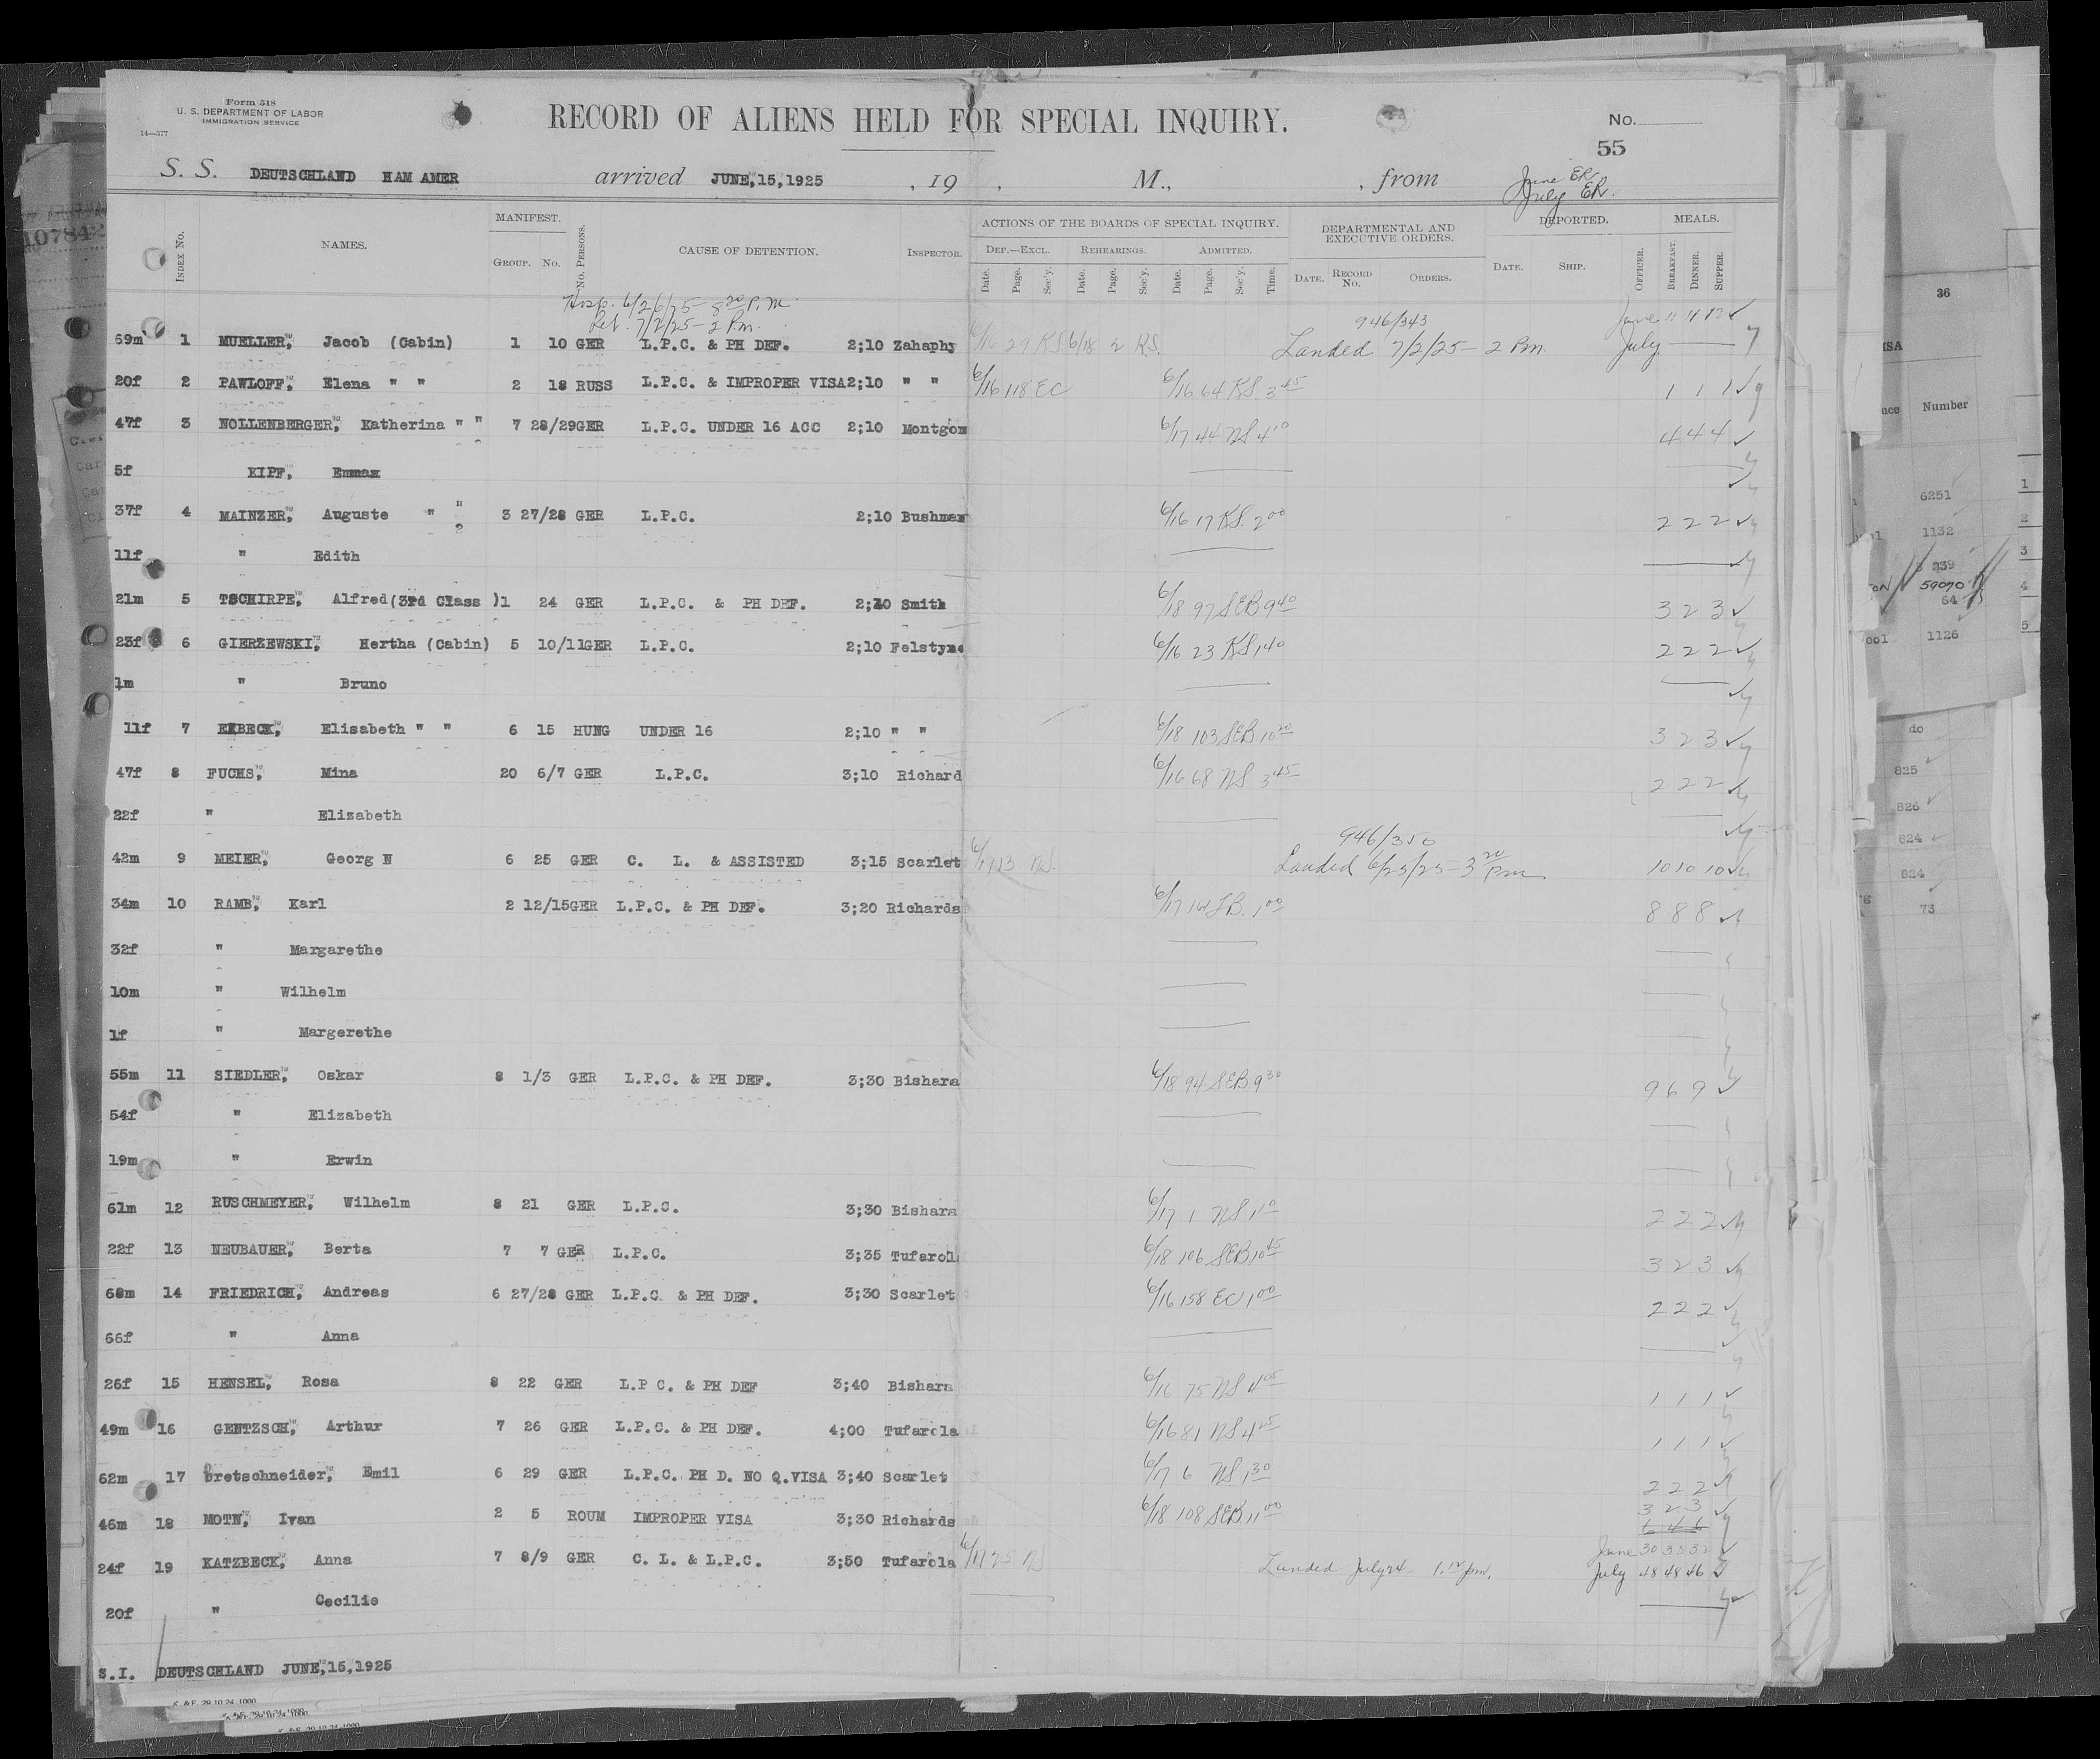 Form 518
U. S. DEPARTMENT OF LABOR
IMMIGRATION SERVICE
14—377
RECORD OF ALIENS HELD FOR SPECIAL INQUIRY.
No.
55
S. S. DEUTSCHLAND HAM AMER arrived JUNE,15,1925 , 19 , M., , from
June ER
July ER.
INDEX No. NAMES. MANIFEST. GROUP. No. No. PERSONS. CAUSE OF DETENTION. INSPECTOR. ACTIONS OF THE BOARDS OF SPECIAL INQUIRY. DEPARTMENTAL AND EXECUTIVE ORDERS. DEPORTED. MEALS.
DEF.—EXCL. REHEARINGS. ADMITTED.
Date. Page. Sec'y. Date. Page. Sec'y. Date. Page. Sec'y. Time. DATE. RECORD No. ORDERS. DATE. SHIP. OFFICER. BREAKFAST. DINNER. SUPPER.
Hosp. 6/26/25 - 8 20 P.M.
Rel. 7/2/25 - 2 P.m. 946/343 June 11 11 12 ✓
69m 1 MUELLER, Jacob (Cabin) 1 10 GER L.P.C. & PH DEF. 2;10 Zahaphy 6/16 29 KS 6/18 2 RS. Landed 7/2/25 - 2 Pm. July
20f 2 PAWLOFF, Elena " " 2 18 RUSS L.P.C. & IMPROPER VISA 2;10 " " 6/16 118 EC 6/16 64 KS 3 45 1 1 1 ✓
47f 3 NOLLENBERGER, Katherina " " 7 28/29GER L.P.C. UNDER 16 ACC 2;10 Montgom 6/17 44 NS 4 10 4 4 4 ✓
5f KIPF, Emmax
37f 4 MAINZER, Auguste " " 3 27/28 GER L.P.C. 2;10 Bushman 6/16 17 KS. 2 00 2 2 2 ✓
11f " Edith
21m 5 TSCHIRPE, Alfred(3rd Class )1 24 GER L.P.C. & PH DEF. 2;10 Smith 6/18 97 SEB 9 40 3 2 3 ✓
23f 6 GIERZEWSKI, Hertha (Cabin) 5 10/11GER L.P.C. 2;10 Felstyne 6/16 23 KS 1 40 2 2 2 ✓
1m " Bruno
11f 7 EXBECK, Elisabeth " " 6 15 HUNG UNDER 16 2;10 " " 6/18 103 SEB 10 20 3 2 3 ✓
47f 8 FUCHS, Mina 20 6/7 GER L.P.C. 3;10 Richard 6/16 68 NS 3 45 2 2 2 ✓
22f " Elizabeth
946/350
42m 9 MEIER, Georg N 6 25 GER C. L. & ASSISTED 3;15 Scarlet 6/17 13 NS. Landed 6/25/25 - 3 20 pm 10 10 10 ✓
34m 10 RAMB, Karl 2 12/15GER L.P.C. & PH DEF. 3;20 Richards 6/17 1 00 8 8 8 ✓
32f " Margarethe
10m " Wilhelm
1f " Margerethe
55m 11 SIEDLER, Oskar 8 1/3 GER L.P.C. & PH DEF. 3;30 Bishara 6/18 94 SEB 9 30 9 6 9 ✓
54f " Elizabeth
19m " Erwin
61m 12 RUSCHMEYER, Wilhelm 8 21 GER L.P.C. 3;30 Bishara 6/17 1 NS 1 10 2 2 2 ✓
22f 13 NEUBAUER, Berta 7 7 GER L.P.C. 3;35 Tufarol 6/18 106 SEB 10 45 3 2 3 ✓
68m 14 FRIEDRICH, Andreas 6 27/28 GER L.P.C. & PH DEF. 3;30 Scarlet 6/16 158 EC 1 00 2 2 2 ✓
66f " Anna
26f 15 HENSEL, Rosa 8 22 GER L.P C. & PH DEF 3;40 Bishara 6/16 75 NS 4 05 1 1 1 ✓
49m 16 GENTZSCH, Arthur 7 26 GER L.P.C. & PH DEF. 4;00 Tufarola 6/16 81 NS 4 25 1 1 1 ✓
62m 17 Bretschneider, Emil 6 29 GER L.P.C. PH D. NO Q.VISA 3;40 Scarlet 6/17 6 NS 1 30 2 2 2 ✓
46m 18 MOTN, Ivan 2 5 ROUM IMPROPER VISA 3;30 Richards 6/18 108 SEB 11 00 3 2 3 ✓
24f 19 KATZBECK, Anna 7 8/9 GER C. L. & L.P.C. 3;50 Tufarola 6/17 25 NS June 30 33 33 ✓
Landed July 24 - 1.15 pm. July 48 48 46
20f " Cecilie
S.I. DEUTSCHLAND JUNE,15,1925
K. & F. 29.10.24. 1000
107842
36
Number
6251
1132
239
59070
64
1126
do
825
826
824
824
73
1
2
3
4
5